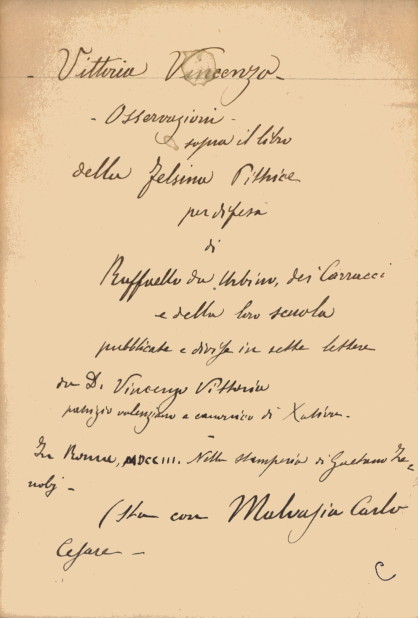 - Vittoria Vincenzo -
- Osservazioni -
sopra il libro
della Felsina Pittrice
per difesa
di
Raffaello da Urbino, dei Carracci
e della loro scuola
pubblicate e divise in sette lettere
da D. Vincenzo Vittoria
patrizio valenziano e canonico di Xativa.
In Roma, MDCCIII. Nella stamperia di Gaetano Ze=
nobj -
(Sta con Malvasia Carlo
Cesare -
C